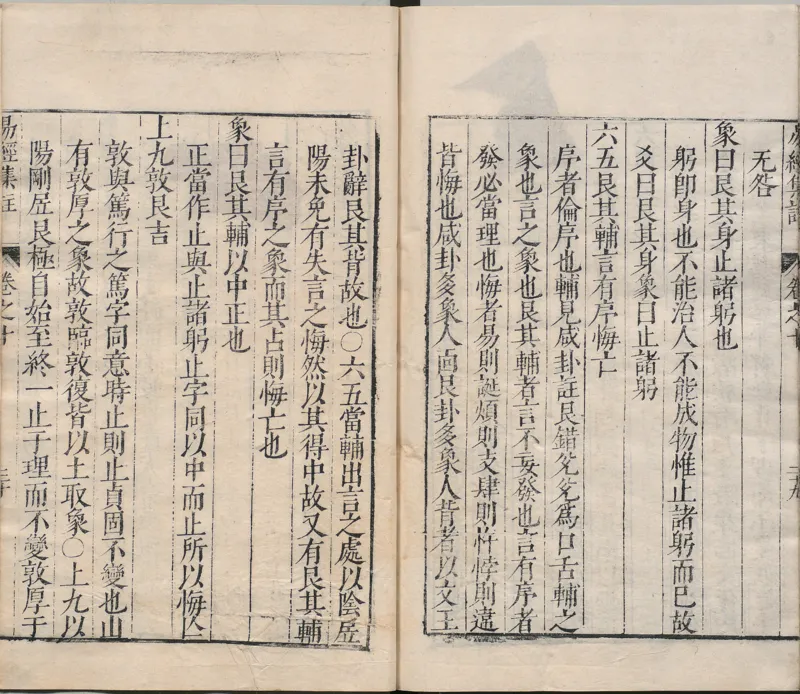 易經集註 卷之十 二十九
无咎
象曰艮其身止諸躬也
躬卽身也不能治人不能成物惟止諸躬而已故
爻曰艮其身象曰止諸躬
六五艮其輔言有序悔亡
序者倫序也輔見咸卦註艮錯兌兌爲口舌輔之
象也言之象也艮其輔者言不妄發也言有序者
發必當理也悔者易則誕煩則支肆則忤悖則違
皆悔也咸卦多象人面艮卦多象人背者以文王
卦辭艮其背故也○六五當輔出言之處以陰居
陽未免有失言之悔然以其得中故又有艮其輔
言有序之象而其占則悔亡也
象曰艮其輔以中正也
正當作止與止諸躬止字同以中而止所以悔亡
上九敦艮吉
敦與篤行之篤字同意時止則止貞固不變也山
有敦厚之象故敦臨敦復皆以土取象○上九以
陽剛居艮極自始至終一止于理而不變敦厚于
易經集註 卷之十 三十